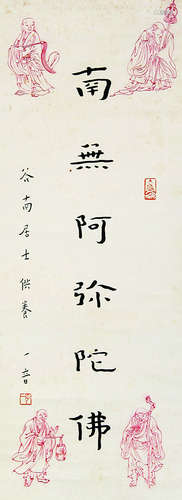 南無阿弥陀佛
谷南居士供養
一音